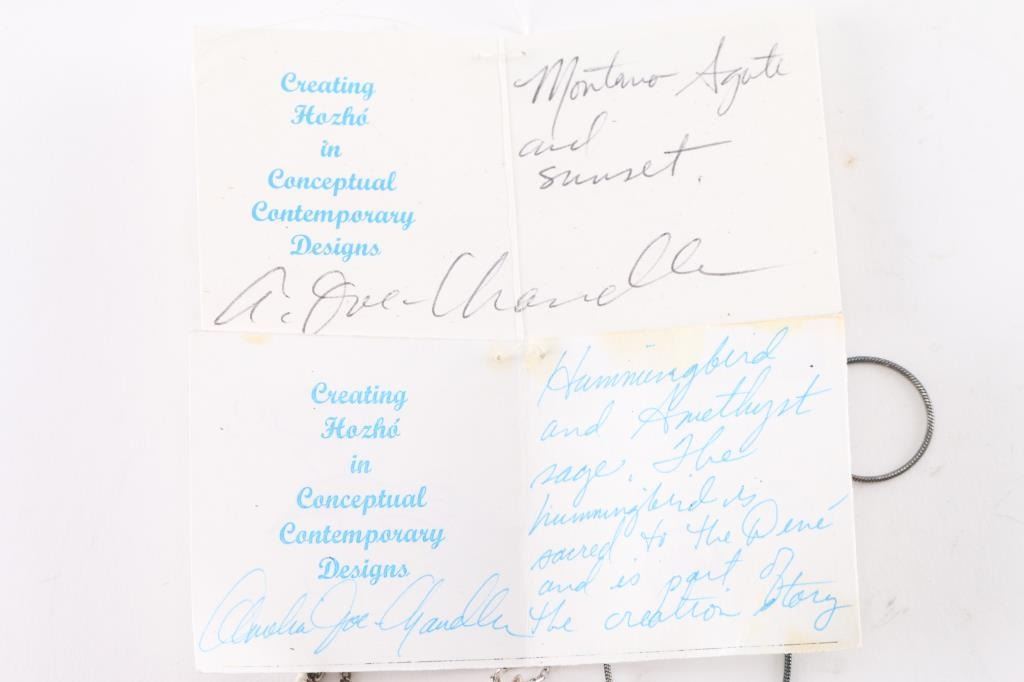 Creating
Hozhó
in
Conceptual
Contemporary
Designs
A. Joe-Chandler
Montana Agate
and
sunset.
Creating
Hozhó
in
Conceptual
Contemporary
Designs
Amelia Joe-Chandler
Hummingbird
and Amethyst
sage. The
hummingbird is
sacred to the Dené
and is part of
the creation story